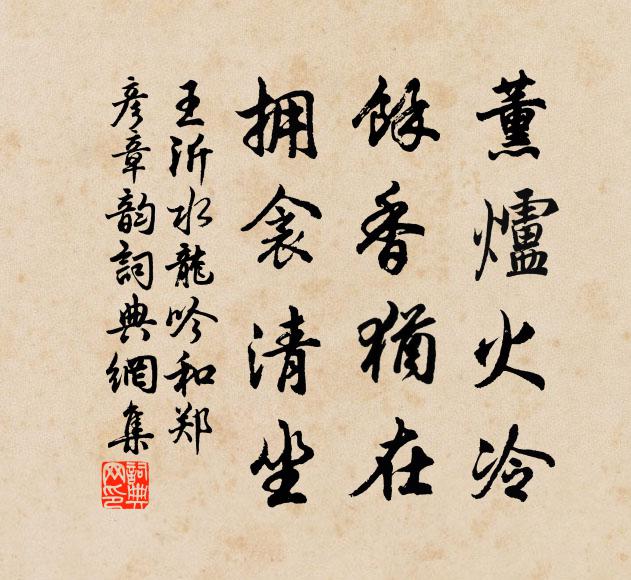 薰爐火冷
餘香猶在
拥衾清坐
王沂水龍吟和郑
彦章韵詞典網集
詞典網印